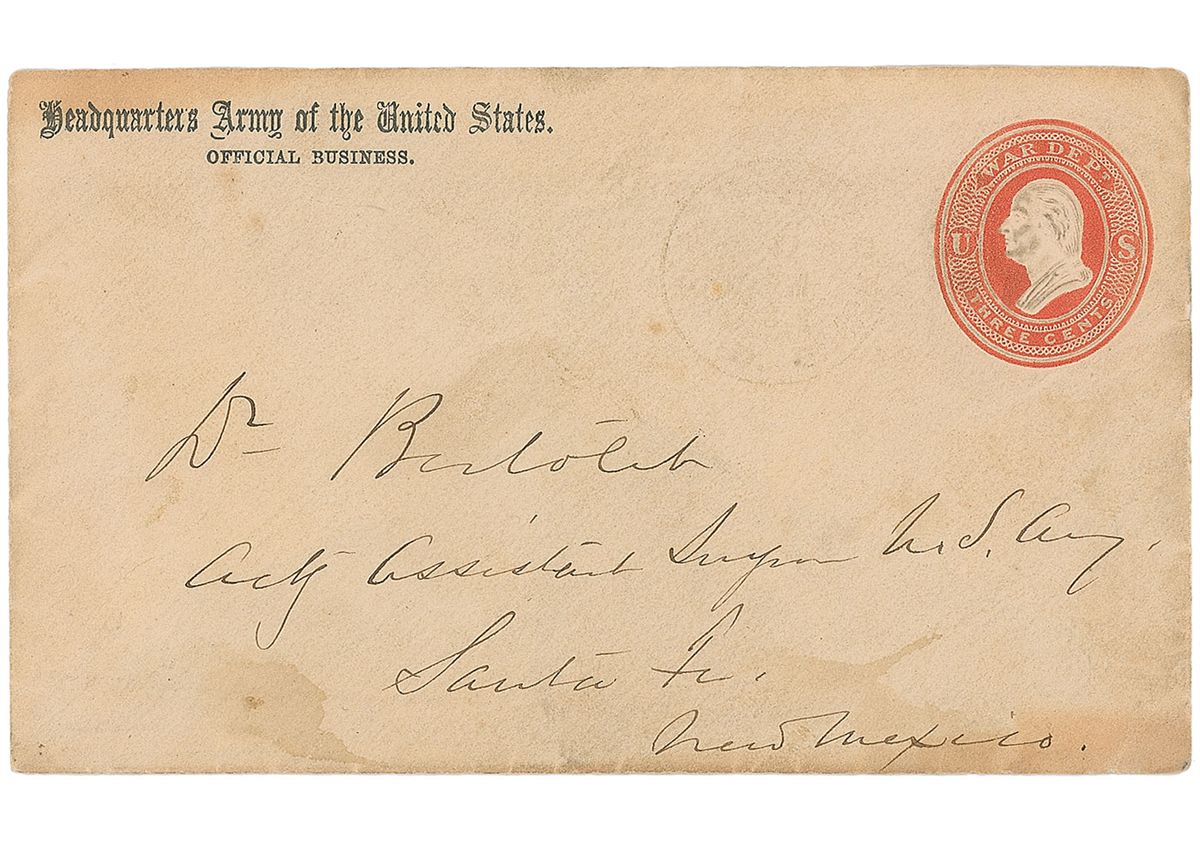 Headquarters Army of the United States.
OFFICIAL BUSINESS.
WAR DEPT.
U S
THREE CENTS
Dr Bertolet
Actg Assistant Surgeon U.S. Army.
Santa Fe.
New Mexico.